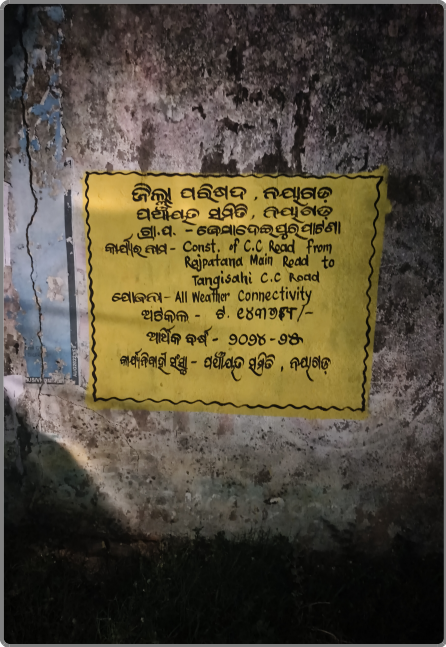 ଜିଲ୍ଲା ପରିଷଦ , ନୟାଗଡ଼
ପଞ୍ଚାୟତ ସମିତି , ନୟାଗଡ଼
ଗ୍ରା.ପ. - ଜେମାଦେଇପୁରପାଟଣା
କାର୍ଯ୍ୟର ନାମ - Const. of C.C Road from
Rajpatana Main Road to
Tangisahi C.C Road
ଯୋଜନା - All Weather Connectivity
ଅଟକଳ - ଟ.
ଆର୍ଥିକ ବର୍ଷ - ୨୦୨୪-୨୫
କାର୍ଯ୍ୟକାରୀ ସଂସ୍ଥା - ପଞ୍ଚାୟତ ସମିତି , ନୟାଗଡ଼